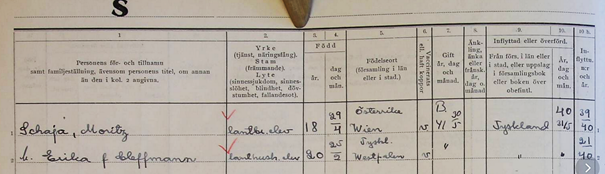 S
1. 2. 3. 4. 5. 6. 7. 8. 9. 10.
Personens för- och tillnamn
samt familjeställning, ävensom personens titel, om annan
än den i kol. 2 angivna.
Yrke
(tjänst, näringsfång).
Stam
(främmande).
Lyte
(sinnessjukdom, sinnes-
slöhet, blindhet, döv-
stumhet, fallandesot).
Född
år.
dag
och
mån.
Födelseort
(församling i län
eller i stad.)
Gift
år, dag
och
mån.
Änk-
ling,
änka eller
frånsk.
år, dag o.
månad
Inflyttad eller överförd.
Från förs. i län eller
i stad, eller uppslag
i församlingsbok
eller boken över
obefintl.
År,
dag
och
mån.
In-
flyttn.
n:r
och år
1 Schaja, Moritz lantbr. elev 18 29/4 Österrike Wien v B 41 30/5 Tyskland 40 39/40
2 h. Erika f Cleffmann lanthush. elev 20 25/2 Tyskl. Westfalen v " " " 21/40